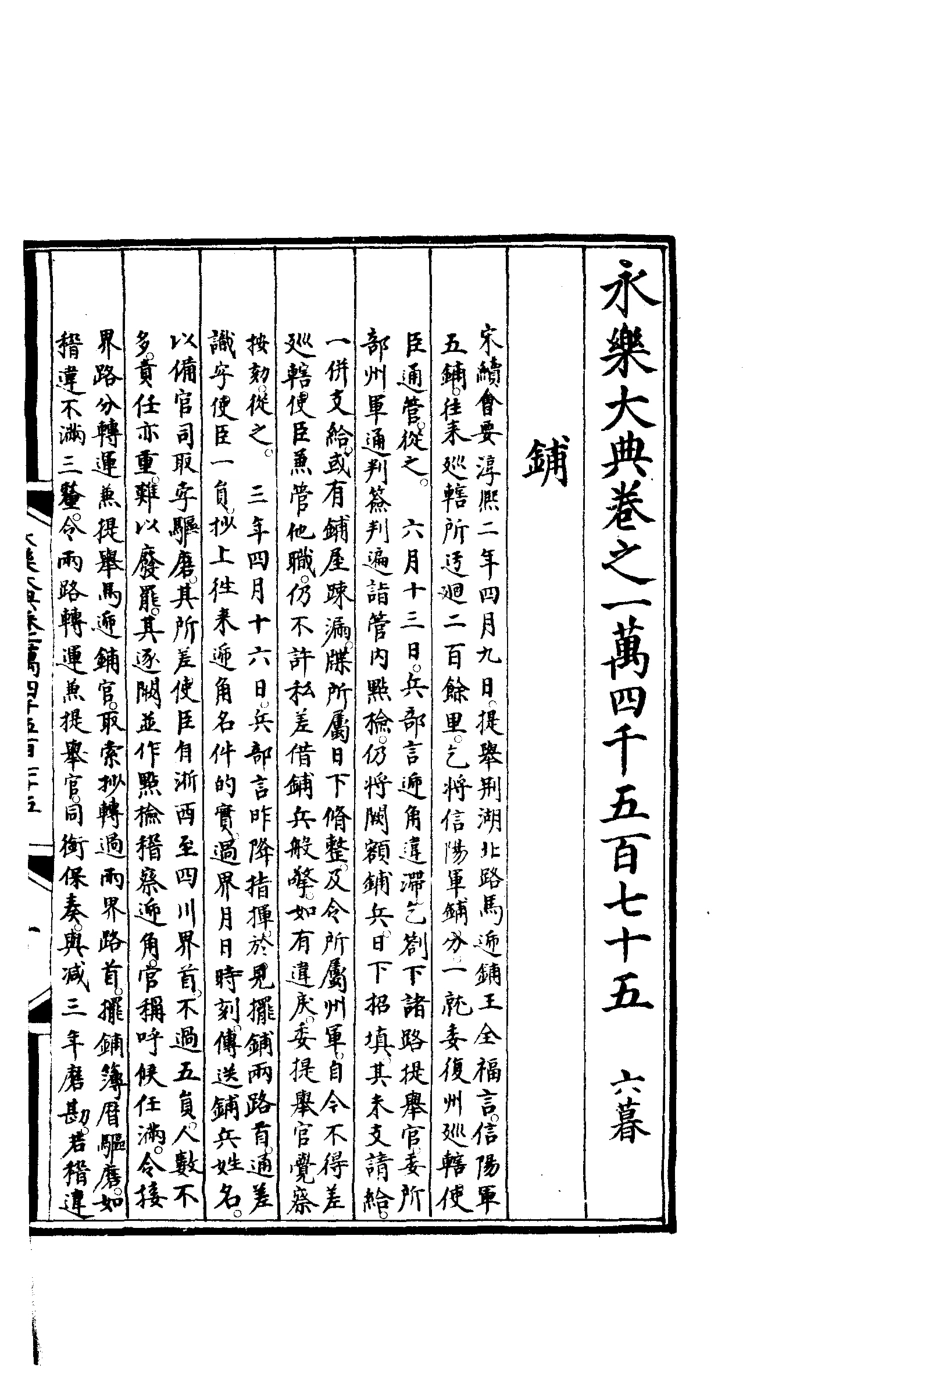 永樂大典卷之一萬四千五百七十五 六暮
鋪
宋續會要淳熙二年四月九日。提舉荆湖北路馬逓鋪王全福言。信陽軍
五鋪。往来廵轄所迂廻二百餘里。乞將信陽軍鋪分。一就委復州廵轄使
臣通管。從之。 六月十三日。兵部言逓角違滯。乞劄下諸路提舉官委所
部州軍通判簽判遍詣管内點檢。仍將闕額鋪兵。日下招填。其未支請給。
一併支給。或有鋪屋踈漏。牒所屬日下脩整。及令所屬州軍。自今不得差
廵轄使臣兼管他職。仍不許私差借鋪兵般擎。如有違戾。委提舉官覺察
按劾。從之。 三年四月十六日。兵部言昨降指揮。於見擺鋪兩路首。通差
識字使臣一員。抄上徃来逓角名件的實。過界月日時刻。傳送鋪兵姓名。
以備官司取索驅磨。其所差使臣自浙西至四川界首。不過五員。人數不
多。責任亦重。難以廢罷。其逐闕並作點檢稽察逓角。官稱呼候任滿。令接
界路分轉運兼提舉馬逓鋪官。取索抄轉過兩界路首。擺鋪簿曆驅磨。如
稽違不滿三釐。令兩路轉運兼提舉官。同銜保奏。與減三年磨勘。若稽違
永樂大典卷之一萬四千五百七十五 一